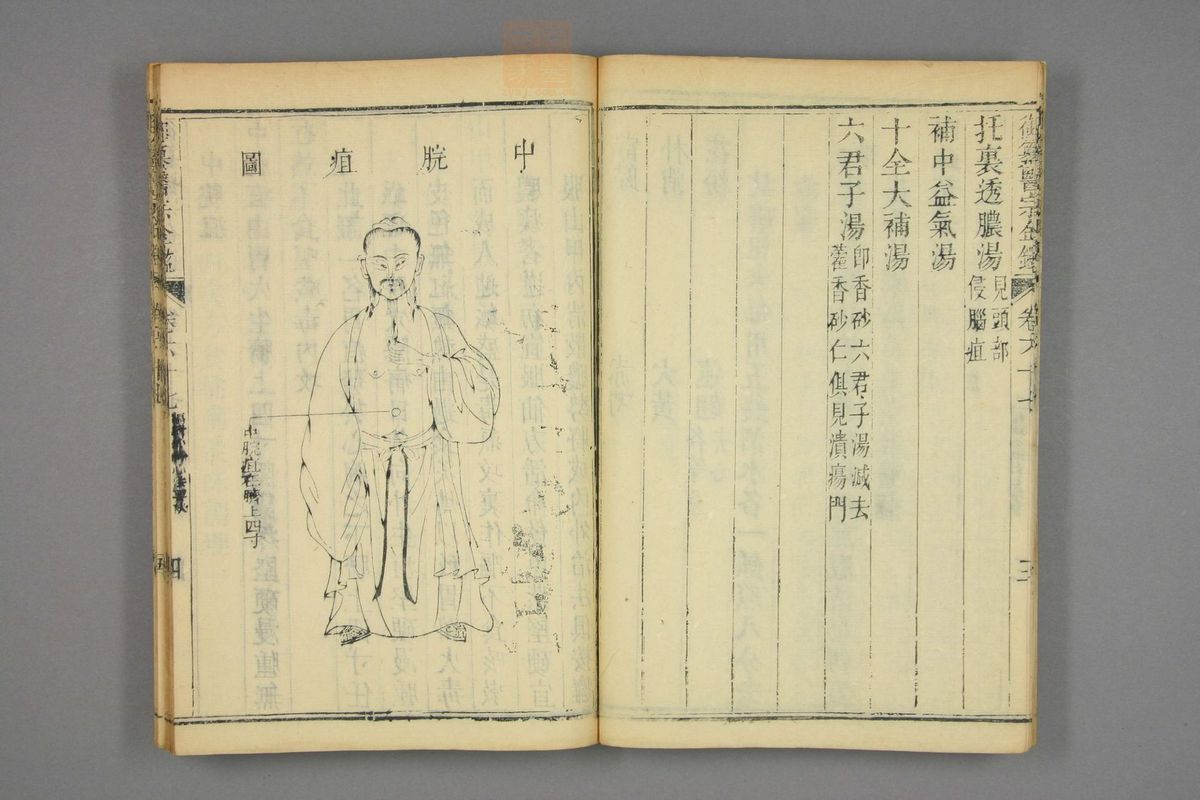 御纂醫宗金鑑 卷六十七
托裏透膿湯 見頭部
侵腦疽
補中益氣湯
十全大補湯
六君子湯 即香砂六君子湯減去
藿香砂仁俱見潰瘍門
三
中脘疽圖
中脘疽在臍上四寸
御纂醫宗金鑑 卷六十七
四